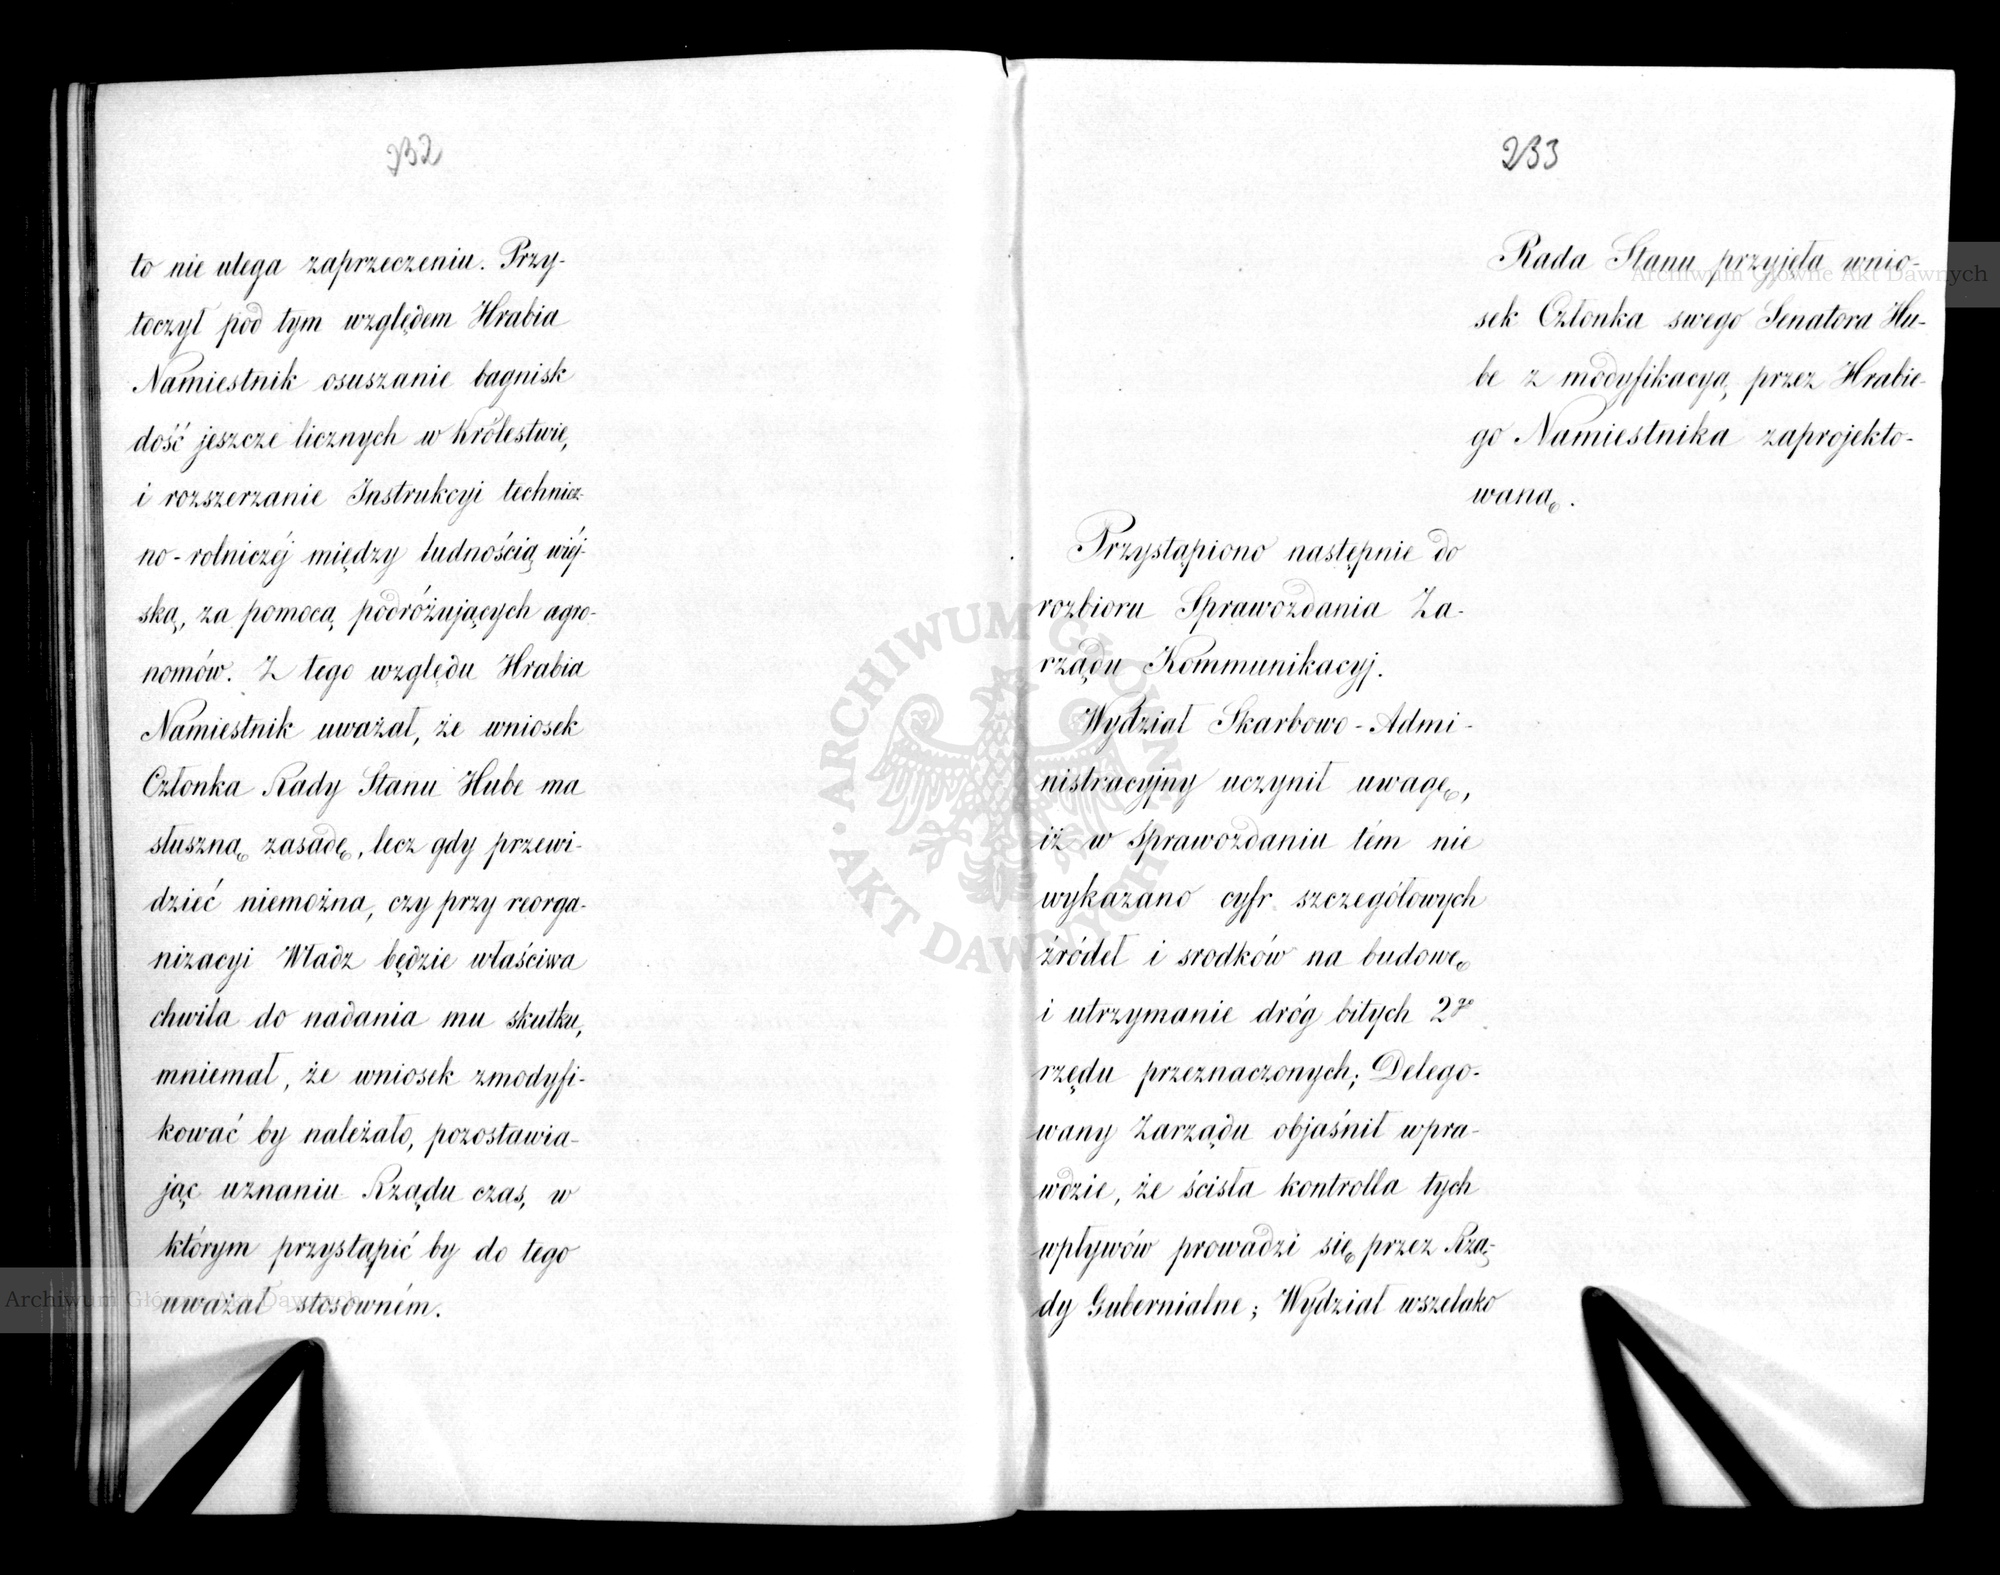 232
to nie ulega zaprzeczeniu. Przy-
toczył pod tym względem Hrabia
Namiestnik osuszanie bagnisk
dość jeszcze licznych w Królestwie,
i rozszerzanie Instrukcyi technicz-
no-rolniczéj między ludnością wiéj-
ską, za pomocą podróżujących agro-
nomów. Z tego względu Hrabia
Namiestnik uważał, że wniosek
Członka Rady Stanu Hube ma
słuszną zasadę, lecz gdy przewi-
dzieć niemożna, czy przy reorga-
nizacyi Władz będzie właściwa
chwila do nadania mu skutku,
mniemał, że wniosek zmodyfi-
kować by należało, pozostawia-
jąc uznaniu Rządu czas, w
którym przystąpić by do tego
uważał stosowném.
233
Rada Stanu przyjęła wnio-
sek Członka swego Senatora Hu-
be z modyfikacyą przez Hrabie-
go Namiestnika zaprojekto-
waną.
Przystąpiono następnie do
rozbioru Sprawozdania Za-
rządu Kommunikacyj.
Wydział Skarbowo-Admi-
nistracyjny uczynił uwagę,
iż w Sprawozdaniu tém nie
wykazano cyfr szczegółowych
źródeł i srodków na budowę
i utrzymanie dróg bitych 2go
rzędu przeznaczonych; Delego-
wany Zarządu objaśnił wpra-
wdzie, że ścisła kontrolla tych
wpływów prowadzi się przez Rzą-
dy Gubernialne; Wydział wszelako
Archiwum Główne Akt Dawnych
Archiwum Główne Akt Dawnych
ARCHIWUM GŁÓWNE
AKT DAWNYCH